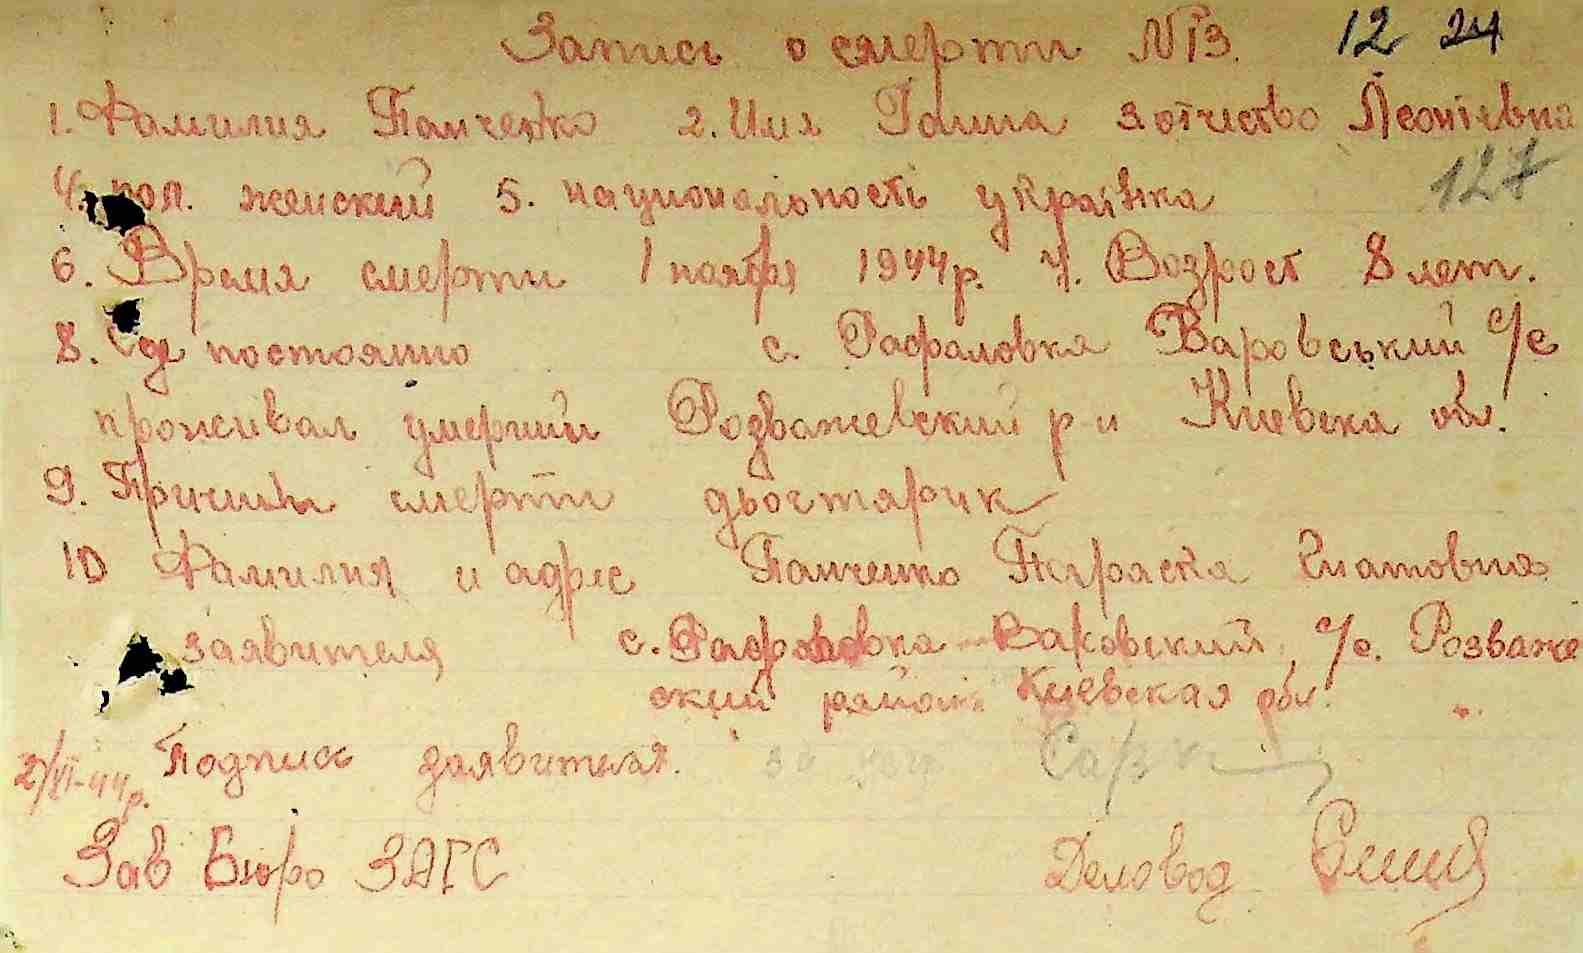 Запись о смерти №13. 12 24
1. Фамилия Панченко 2. Имя Ганна 3 отчество Леонтівна
127
4. пол. женский 5. национальность українка
6. Время смерти 1 ноября 1944р. 7. Возрост 8 лет.
8. Где постоянно с. Рафаловка Варовський с/с
проживал умерший Розважевский р-н Киевска обл.
9. Причины смерти дьочтярик
10 Фамилия и адрес Панченко Параска Гнатовна
заявителя с. Рафаловка Варовский с/с. Розваже
ский район Киевская обл.
2/XI-44р. Подпись заявителя.
Зав Бюро ЗАГС Деловод